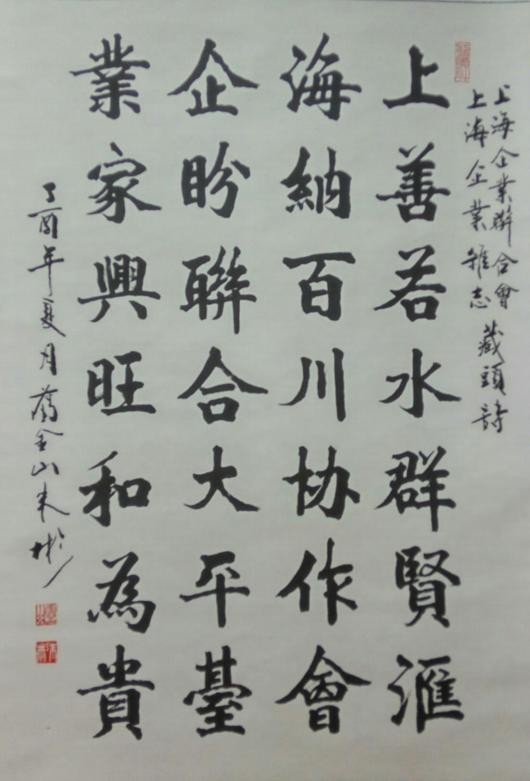 上海企業聯合會
上海企業雜志
藏頭詩
上善若水群賢滙
海納百川協作會
企盼聯合大平臺
業家興旺和為貴
丁酉年夏月
金山